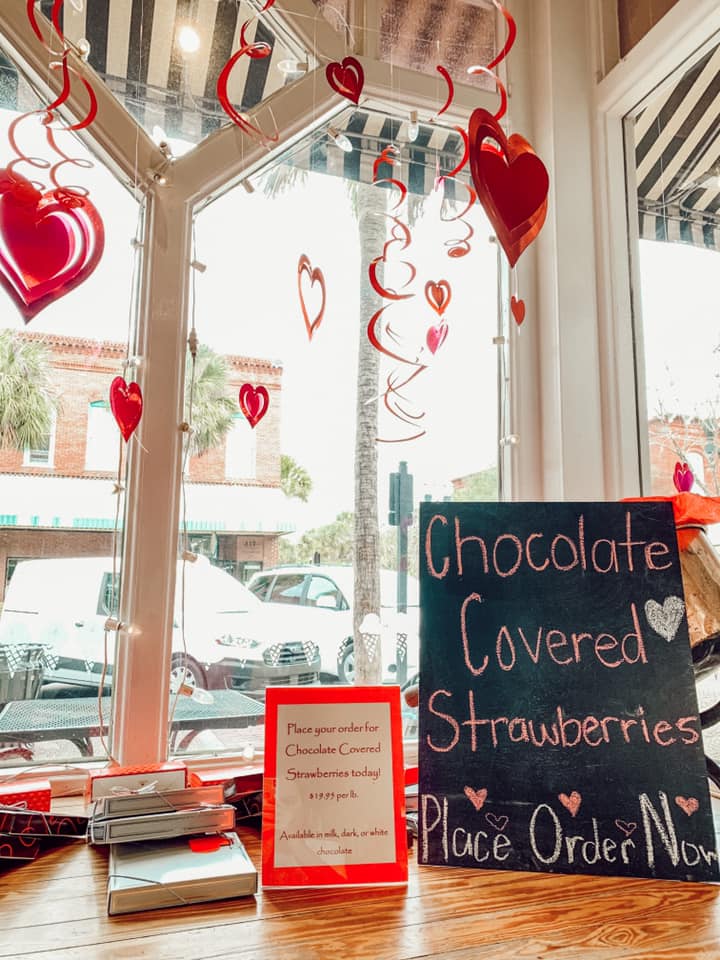 Chocolate
Covered
Strawberries
Place Order Now
Place your order for
Chocolate Covered
Strawberries today!
$19.95 per lb.
Available in milk, dark, or white
chocolate